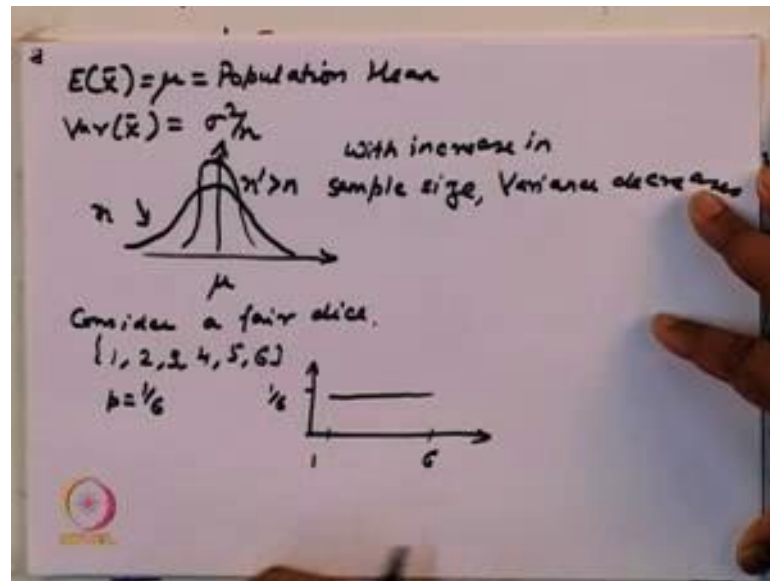 E(x̄) = μ = Population Mean
Var(x̄) = σ²/n
with increase in
n n'>n sample size, Variance decreases
μ
Consider a fair dice.
{1, 2, 3, 4, 5, 6}
p = 1/6 1/6
1 6